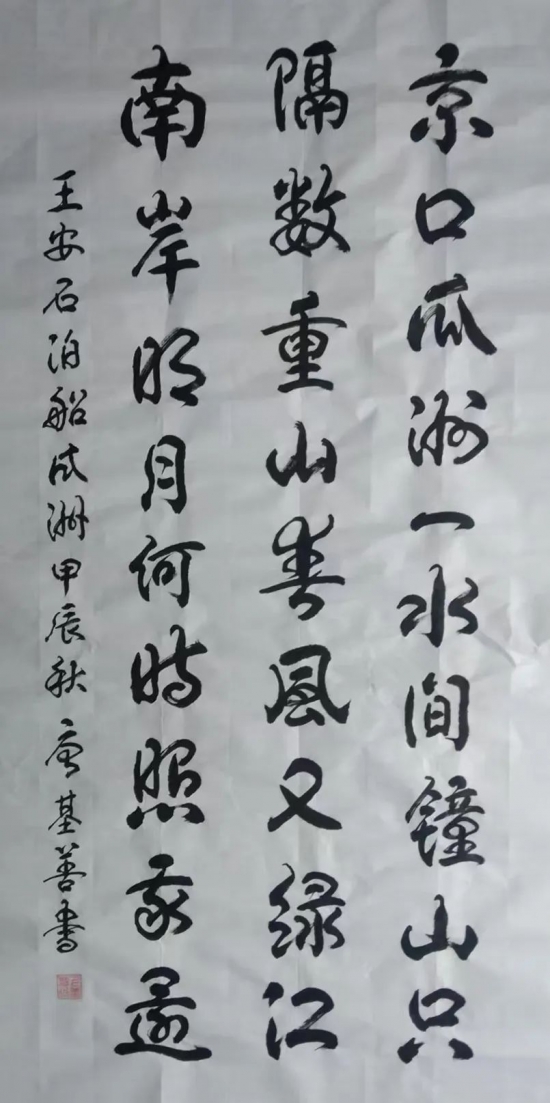 京口瓜洲一水间鐘山只
隔数重山春風又緑江
南岸明月何時照我還
王安石泊船瓜洲甲辰秋唐基善書